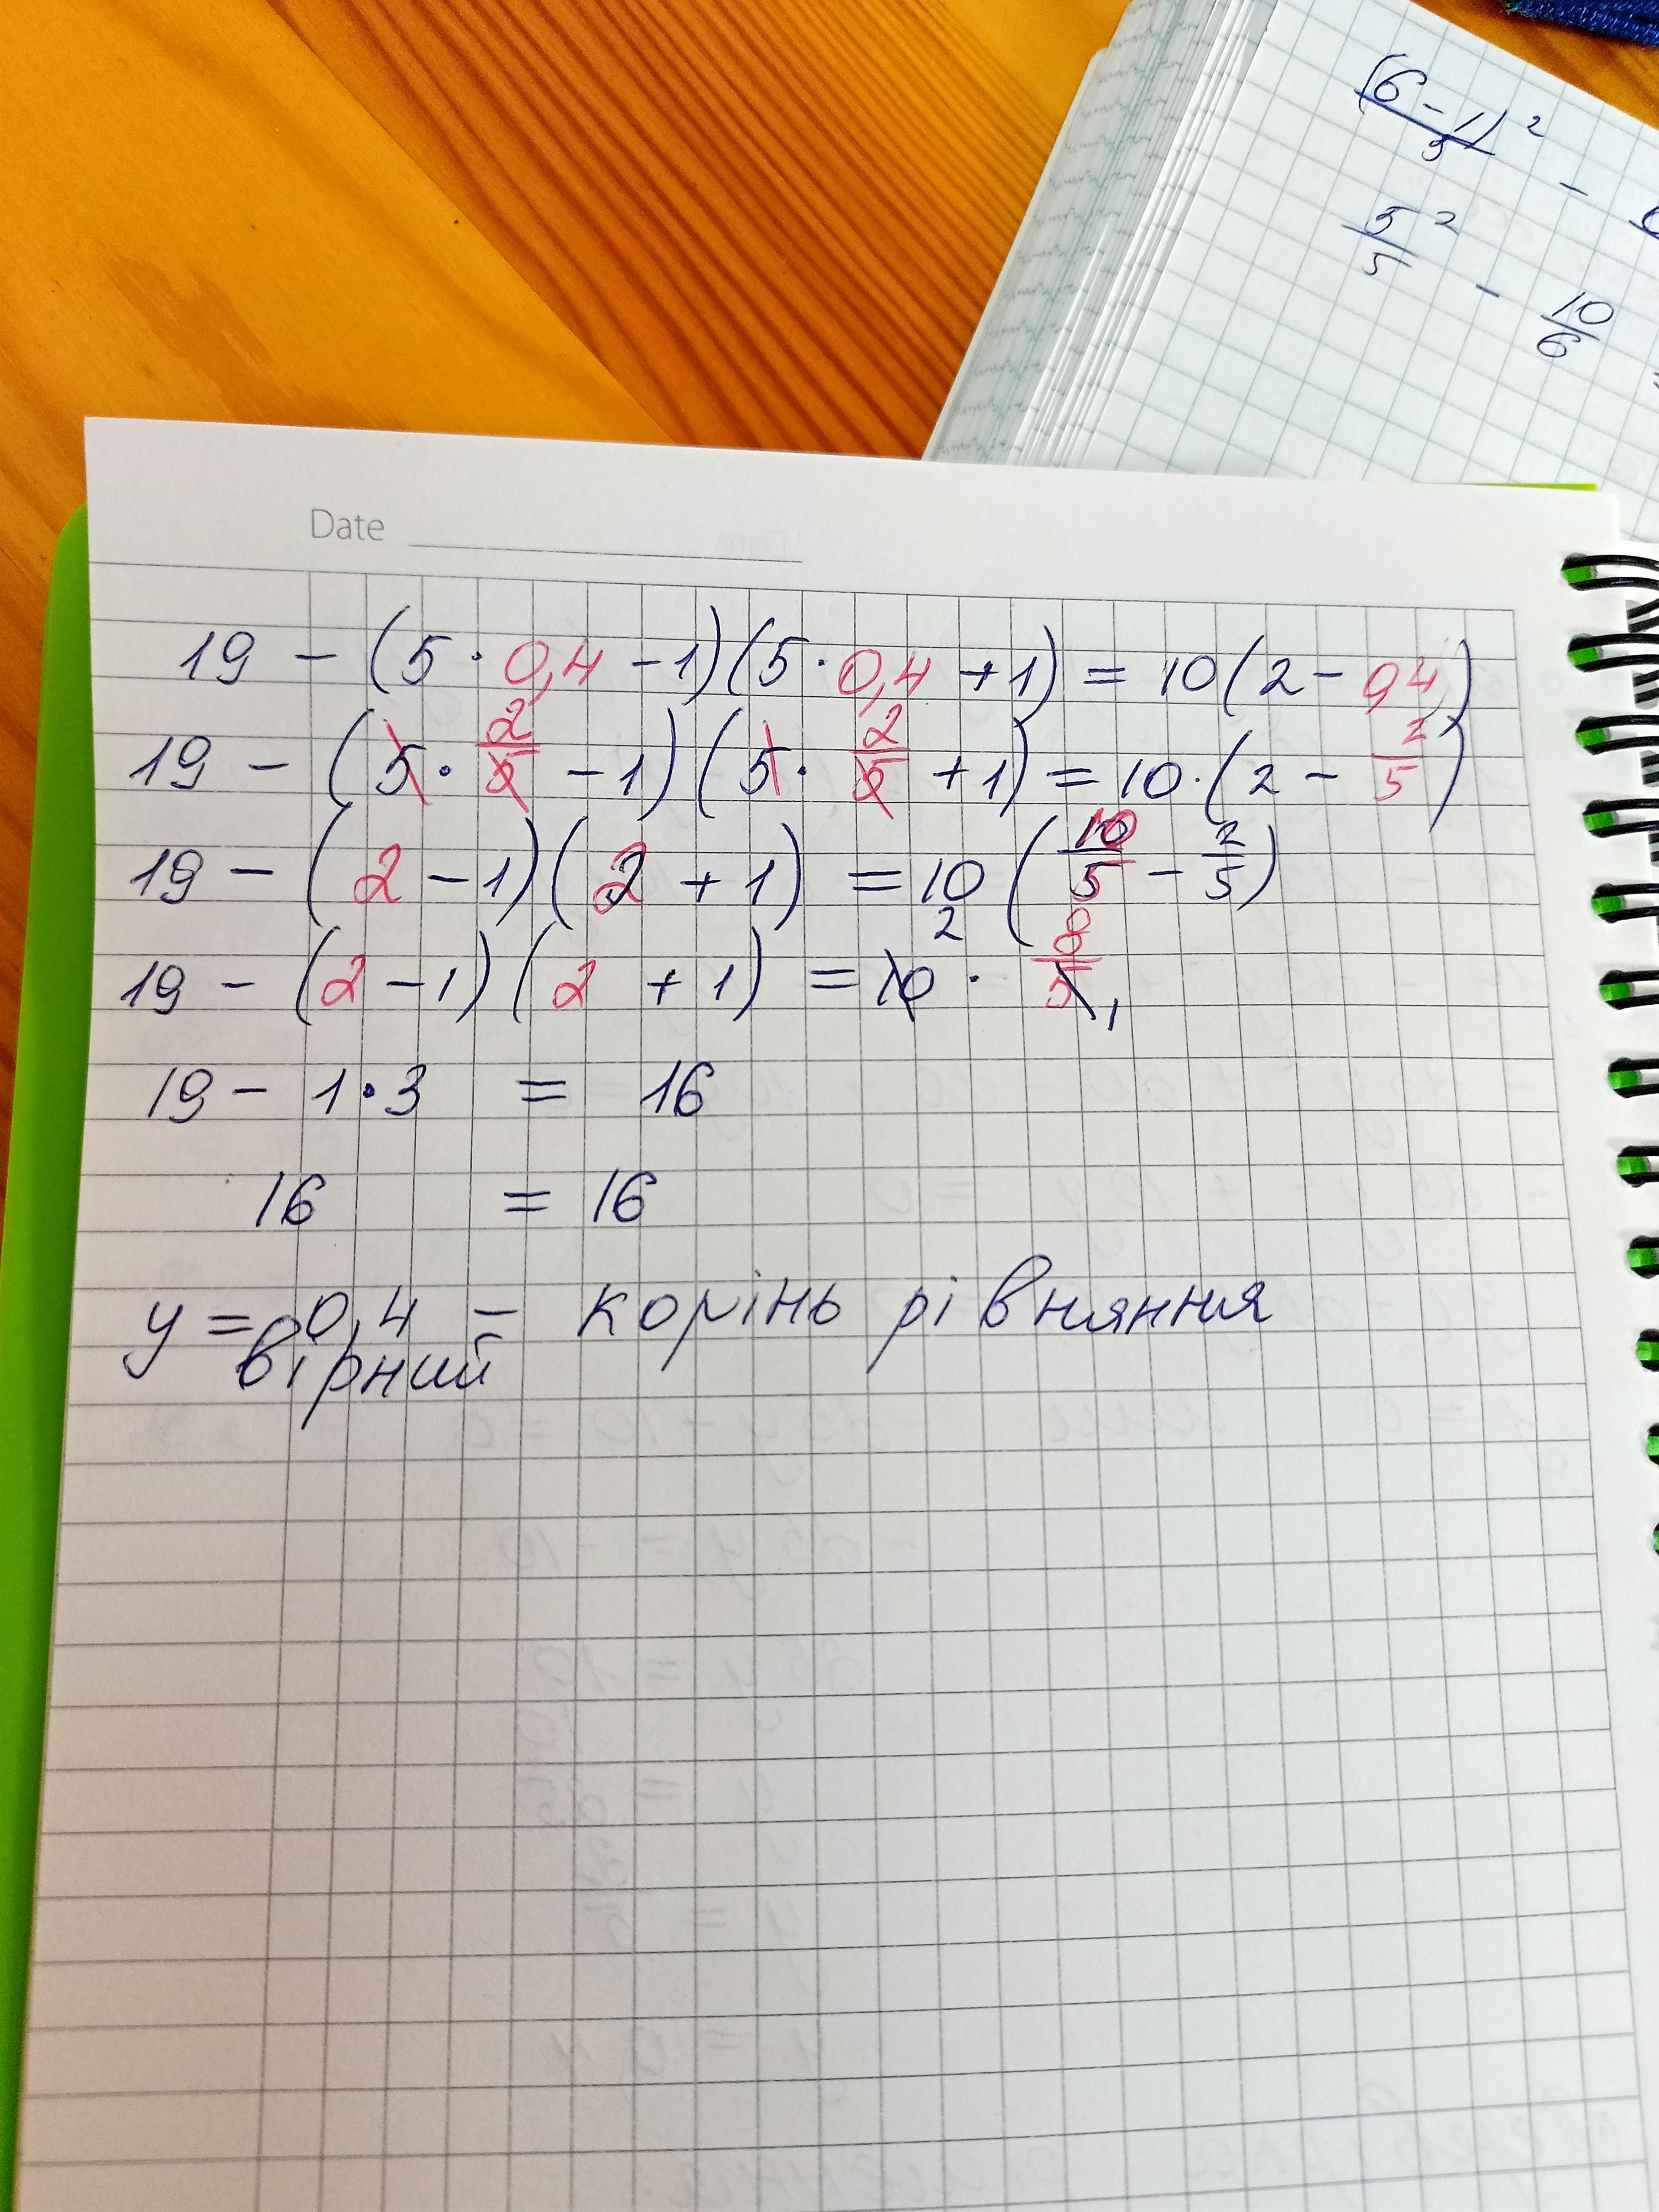 (6-1)²/5 -
5²/5 - 10/6
Date
19 - (5 · 0,4 - 1)(5 · 0,4 + 1) = 10(2 - 0,4)
19 - (5 · 2/5 - 1)(5 · 2/5 + 1) = 10 · (2 - 2/5)
19 - (2 - 1)(2 + 1) = 10 (10/5 - 2/5)
19 - (2 - 1)(2 + 1) = 10 2 · 8/5 1
19 - 1 · 3 = 16
16 = 16
y = 0,4 - корінь рівняння
вірний